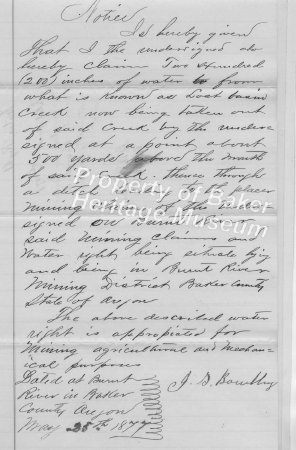 Notice
Is hereby given
that I the undersigned do
hereby claim Two Hundred
(200) inches of water from
what is known as Lost basin
Creek now being taken out
of said Creek by the under
signed at a point about
500 yards above the mouth
of said Creek thence through
a ditch to the placer
mining claims of the under
signed on Burnt River
said mining claims and
water right being situate lying
and being in Burnt River
Mining District Baker County
State of Oregon
The above described water
right is appropriated for
Mining agricultural and Mechan-
ical purposes
Dated at Burnt
River in Baker
County Oregon
May 25th 1877
Property of Baker
Heritage Museum